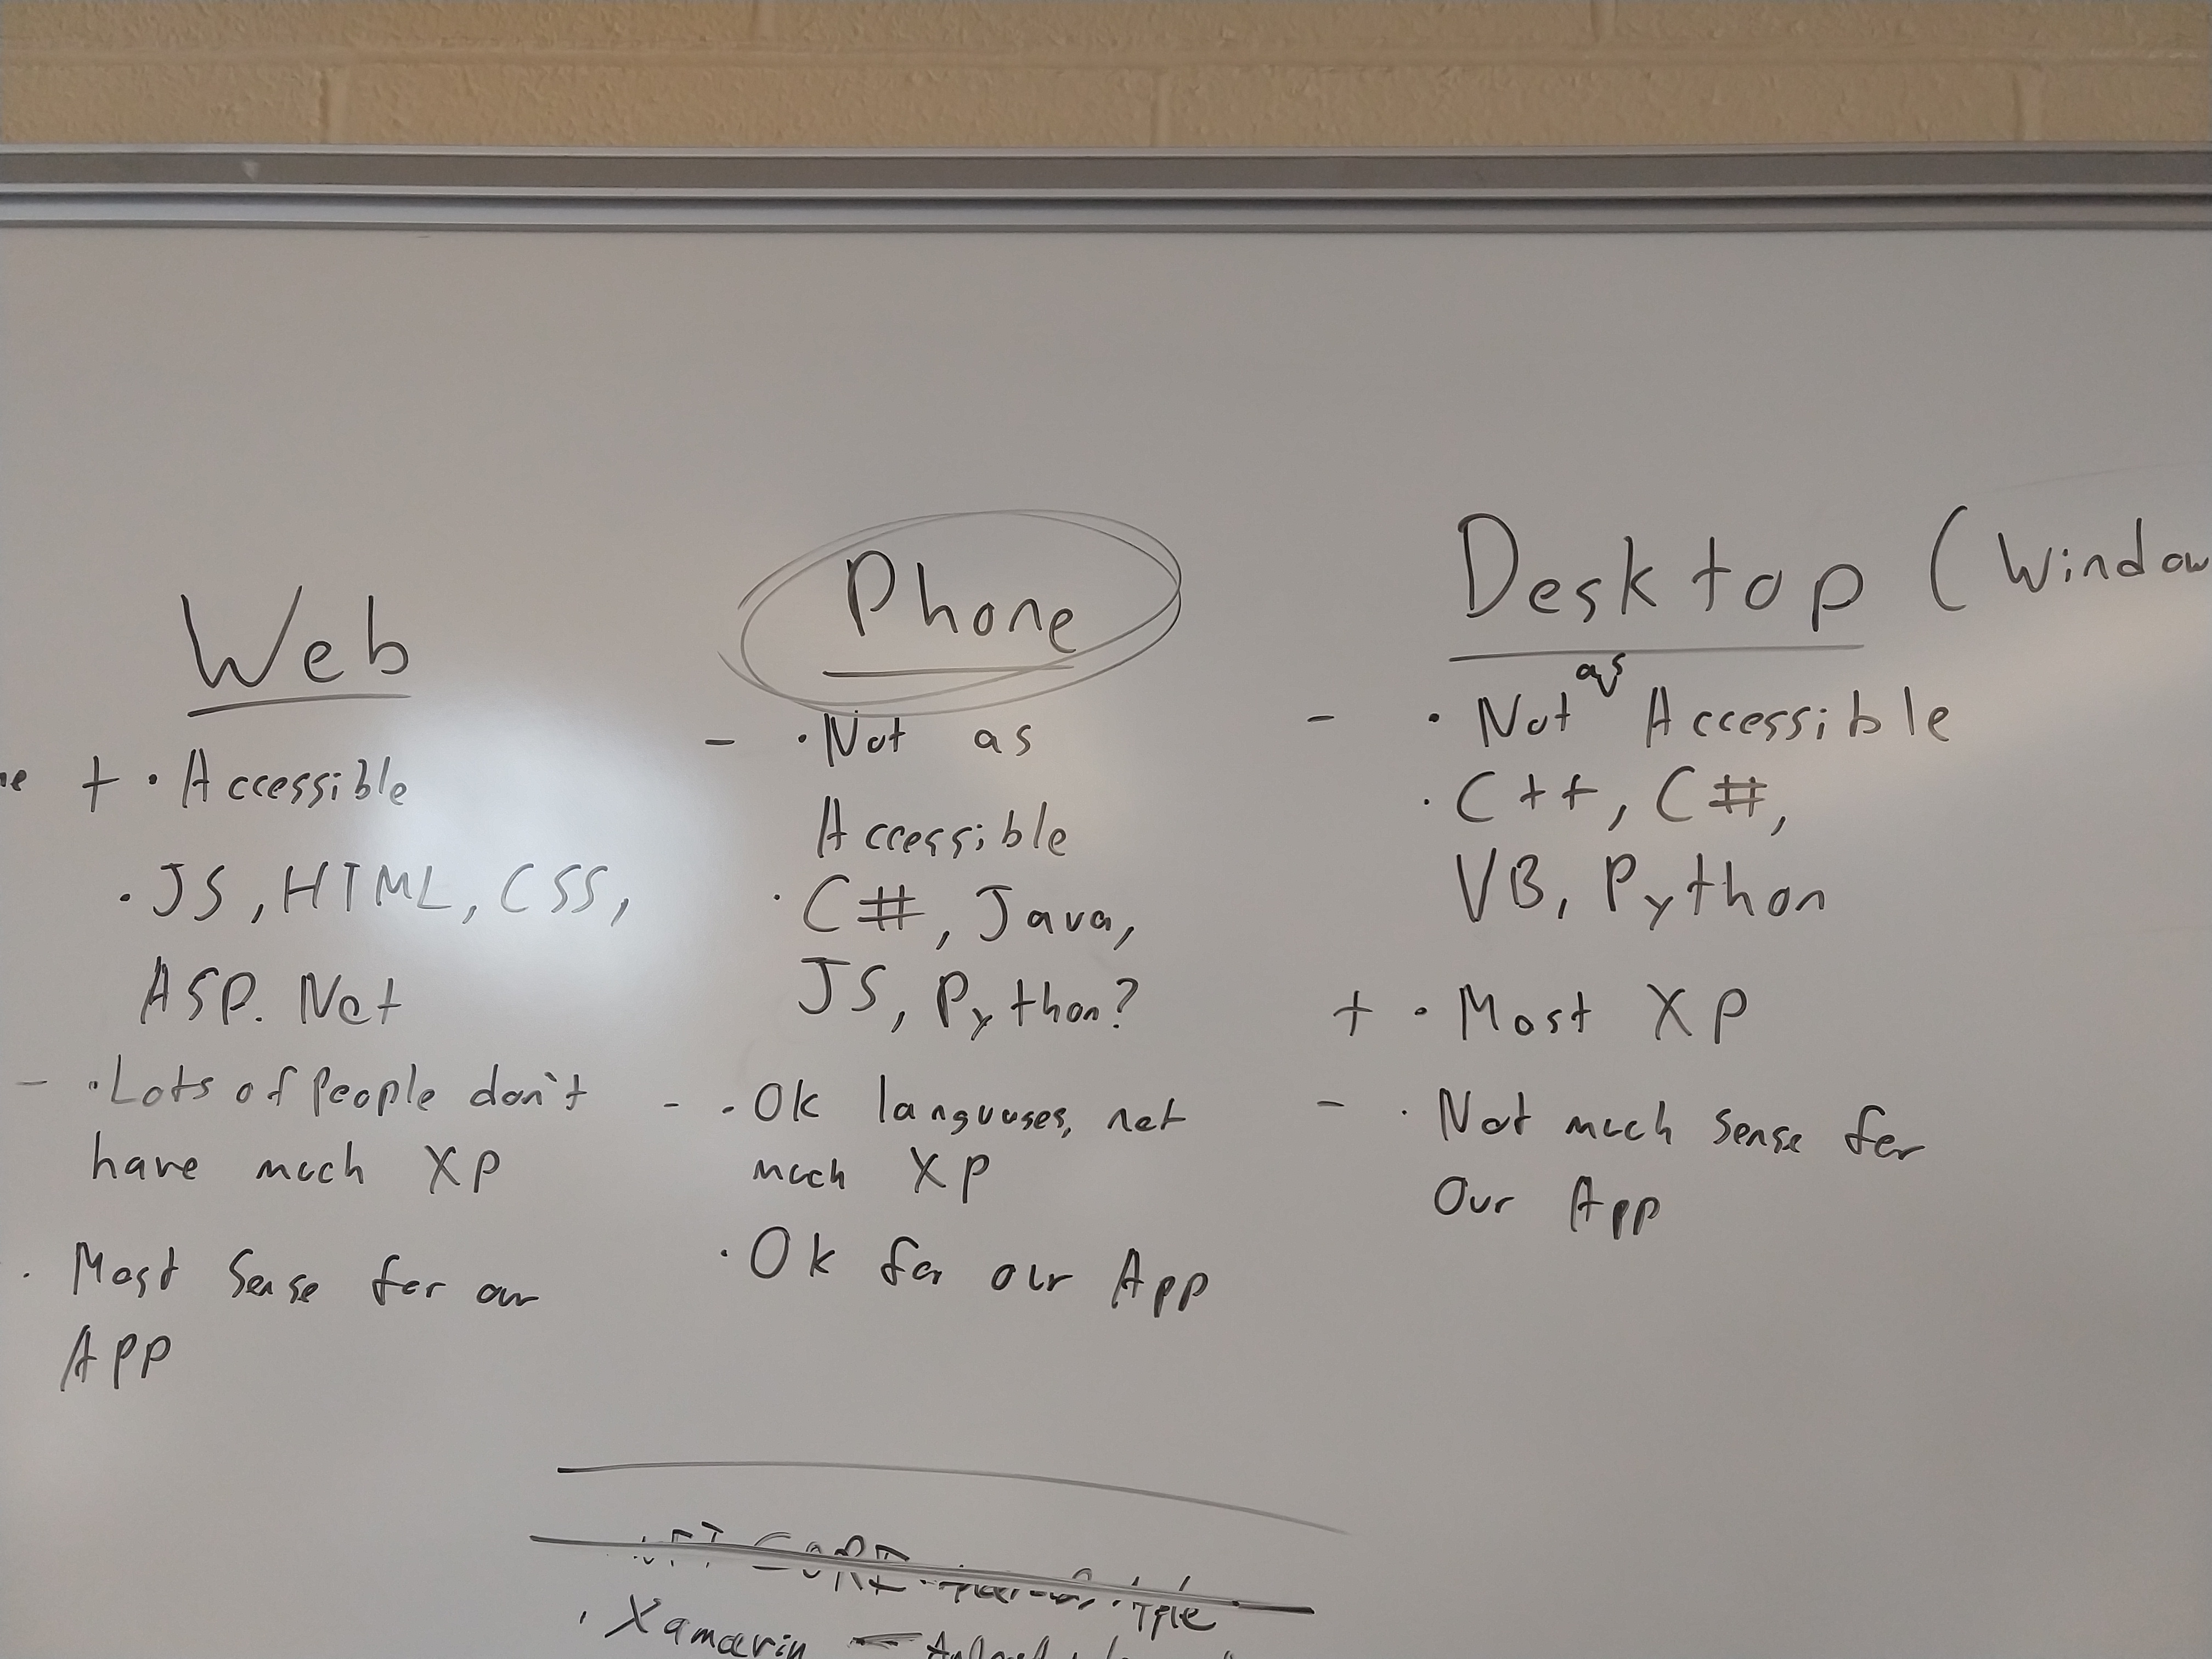 Web
+ · Accessible
· JS, HTML, CSS,
ASP. Net
- · Lots of People don't
have much XP
· Most Sense for our
APP
Phone
- · Not as
Accessible
· C#, Java,
JS, Python?
- · Ok languages, not
much XP
· Ok for our App
Desktop (Window
- · Not as Accessible
· C++, C#,
VB, Python
+ · Most XP
- · Not much sense for
Our App
· Xamarin